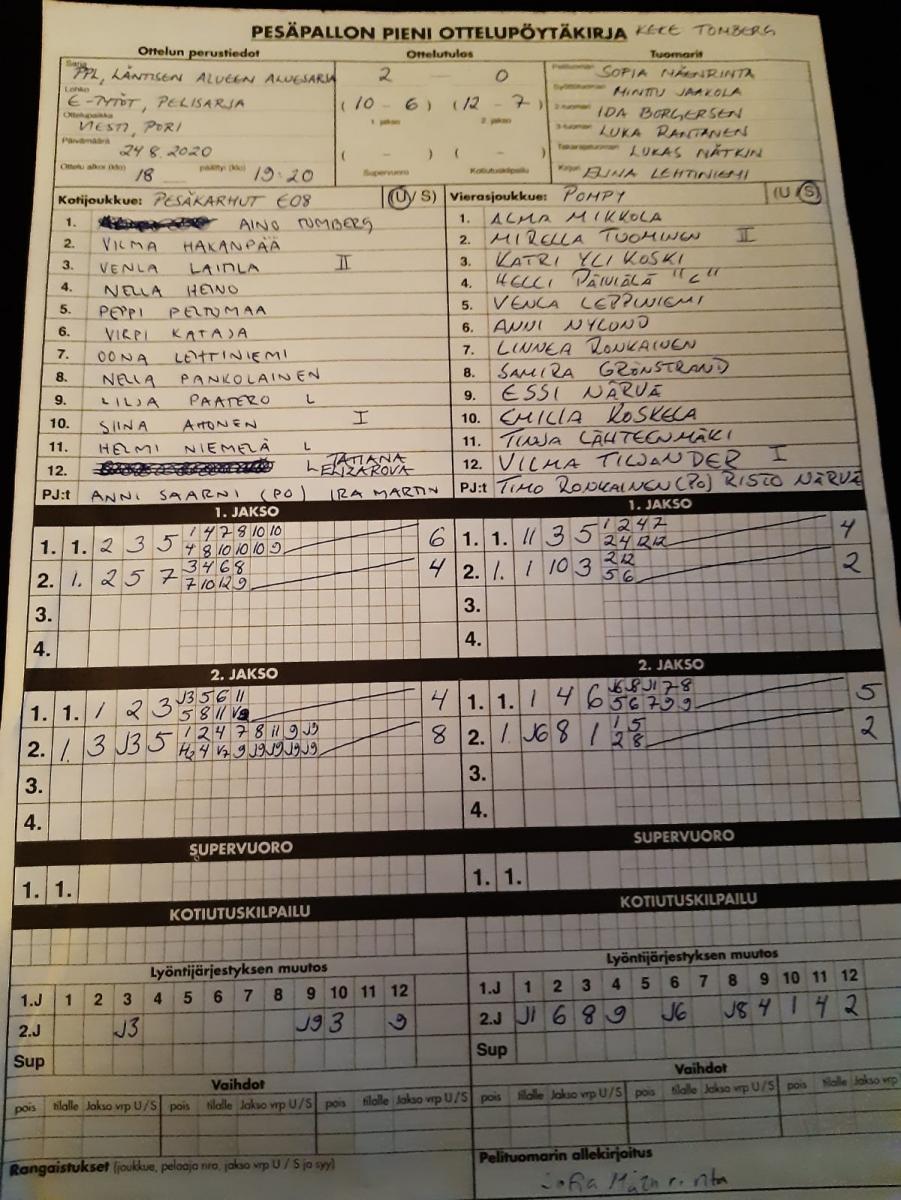 PESÄPALLON PIENI OTTELUPÖYTÄKIRJA KEKE TOMBERG
Ottelun perustiedot Ottelutulos Tuomarit
Sarja PPL, LÄNTISEN ALUEEN ALUESARJA 2 — 0 SOFIA MÄENRINTA
Lohko E-TYTÖT, PELISARJA (10 - 6) (12 - 7) MINTTU JAAKOLA
Ottelupaikka VIESTI, PORI 1. jakso 2. jakso IDA BORGERSEN
Päivämäärä 24.8.2020 ( - ) ( - ) LUKA RANTANEN
Supervuoro Kotiutuskilpailu LUKAS NÄTKIN
Ottelu alkoi (klo) 18 päättyi (klo) 19:20 Kirjuri ELINA LEHTINIEMI
Kotijoukkue: PESÄKARHUT E08 (U/S) Vierasjoukkue: POMPY (U/S)
1. AINO TOMBERG 1. ALMA MIKKOLA
2. VILMA HAKANPÄÄ 2. MIRELLA TUOMINEN II
3. VENLA LAITLA II 3. KATRI YLIKOSKI
4. NELLA HEINO 4. HELLI PÄIVIÄLÄ "C"
5. PEPPI PELTOMAA 5. VENLA LEPPINIEMI
6. VIRPI KATAJA 6. ANNI NYLUND
7. OONA LEHTINIEMI 7. LINNEA RONKAINEN
8. NELLA PANKOLAINEN 8. SAMIRA GRÖNSTRAND
9. LILJA PAATERO L 9. ESSI NÄRVÄ
10. SIINA AHONEN I 10. EMILIA KOSKELA
11. HELMI NIEMELÄ L 11. TINJA LÄHTEENMÄKI
12. L TATIANA ELIZAROVA 12. VILMA TILJANDER I
PJ:t ANNI SAARNI (PO) IRA MARTIN PJ:t TIMO RONKAINEN (PO) RISTO NÄRVÄ
1. JAKSO 1. JAKSO
1. 1. 2 3 5 1 4 7 8 10 10 6 1. 1. 11 3 5 1 2 4 7 4
4 8 10 10 10 9 2 4 12 12
2. 1. 2 5 7 3 4 6 8 4 2. 1. 1 10 3 2 12 2
7 10 12 9 5 6
3. 3.
4. 4.
2. JAKSO 2. JAKSO
1. 1. 1 2 3 J3 5 6 11 4 1. 1. 1 4 6 J6 J8 J1 7 8 5
5 8 11 5 6 7 9 9
2. 1. 3 J3 5 1 2 4 7 8 11 9 J9 8 2. 1. J6 8 1 1 5 2
4 9 J9 J9 J9 J9 2 8
3. 3.
4. 4.
SUPERVUORO SUPERVUORO
1. 1. 1. 1.
KOTIUTUSKILPAILU KOTIUTUSKILPAILU
Lyöntijärjestyksen muutos Lyöntijärjestyksen muutos
1.J 1 2 3 4 5 6 7 8 9 10 11 12 1.J 1 2 3 4 5 6 7 8 9 10 11 12
2.J J3 J9 3 9 2.J J1 6 8 9 J6 J8 4 1 4 2
Sup Sup
Vaihdot Vaihdot
pois tilalle Jakso vrp U/S pois tilalle Jakso vrp U/S pois tilalle Jakso vrp U/S pois tilalle Jakso vrp U/S pois tilalle Jakso vrp U/S pois tilalle Jakso vrp
Rangaistukset (joukkue, pelaaja nro, jakso vrp U / S ja syy) Pelituomarin allekirjoitus
Sofia Mäenrinta